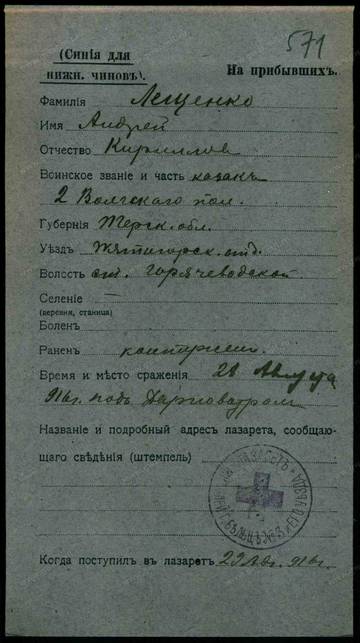 571
(Синія для
нижн. чиновъ).
На прибывшихъ.
Фамилія Лещенко
Имя Андрей
Отчество Кириллов
Воинское званіе и часть казакъ
2 Волгскаго пол.
Губернія Терск. обл.
Уѣздъ Пятигорск. отд.
Волость ст. Горячеводской
Селеніе —
(деревня, станица)
Боленъ
Раненъ контужен.
Время и мѣсто сраженія 28 Августа
916 г. подъ
Названіе и подробный адресъ лазарета, сообщаю-
щаго свѣдѣнія (штемпель)
Когда поступилъ въ лазаретъ 29 Авг. 916 г.